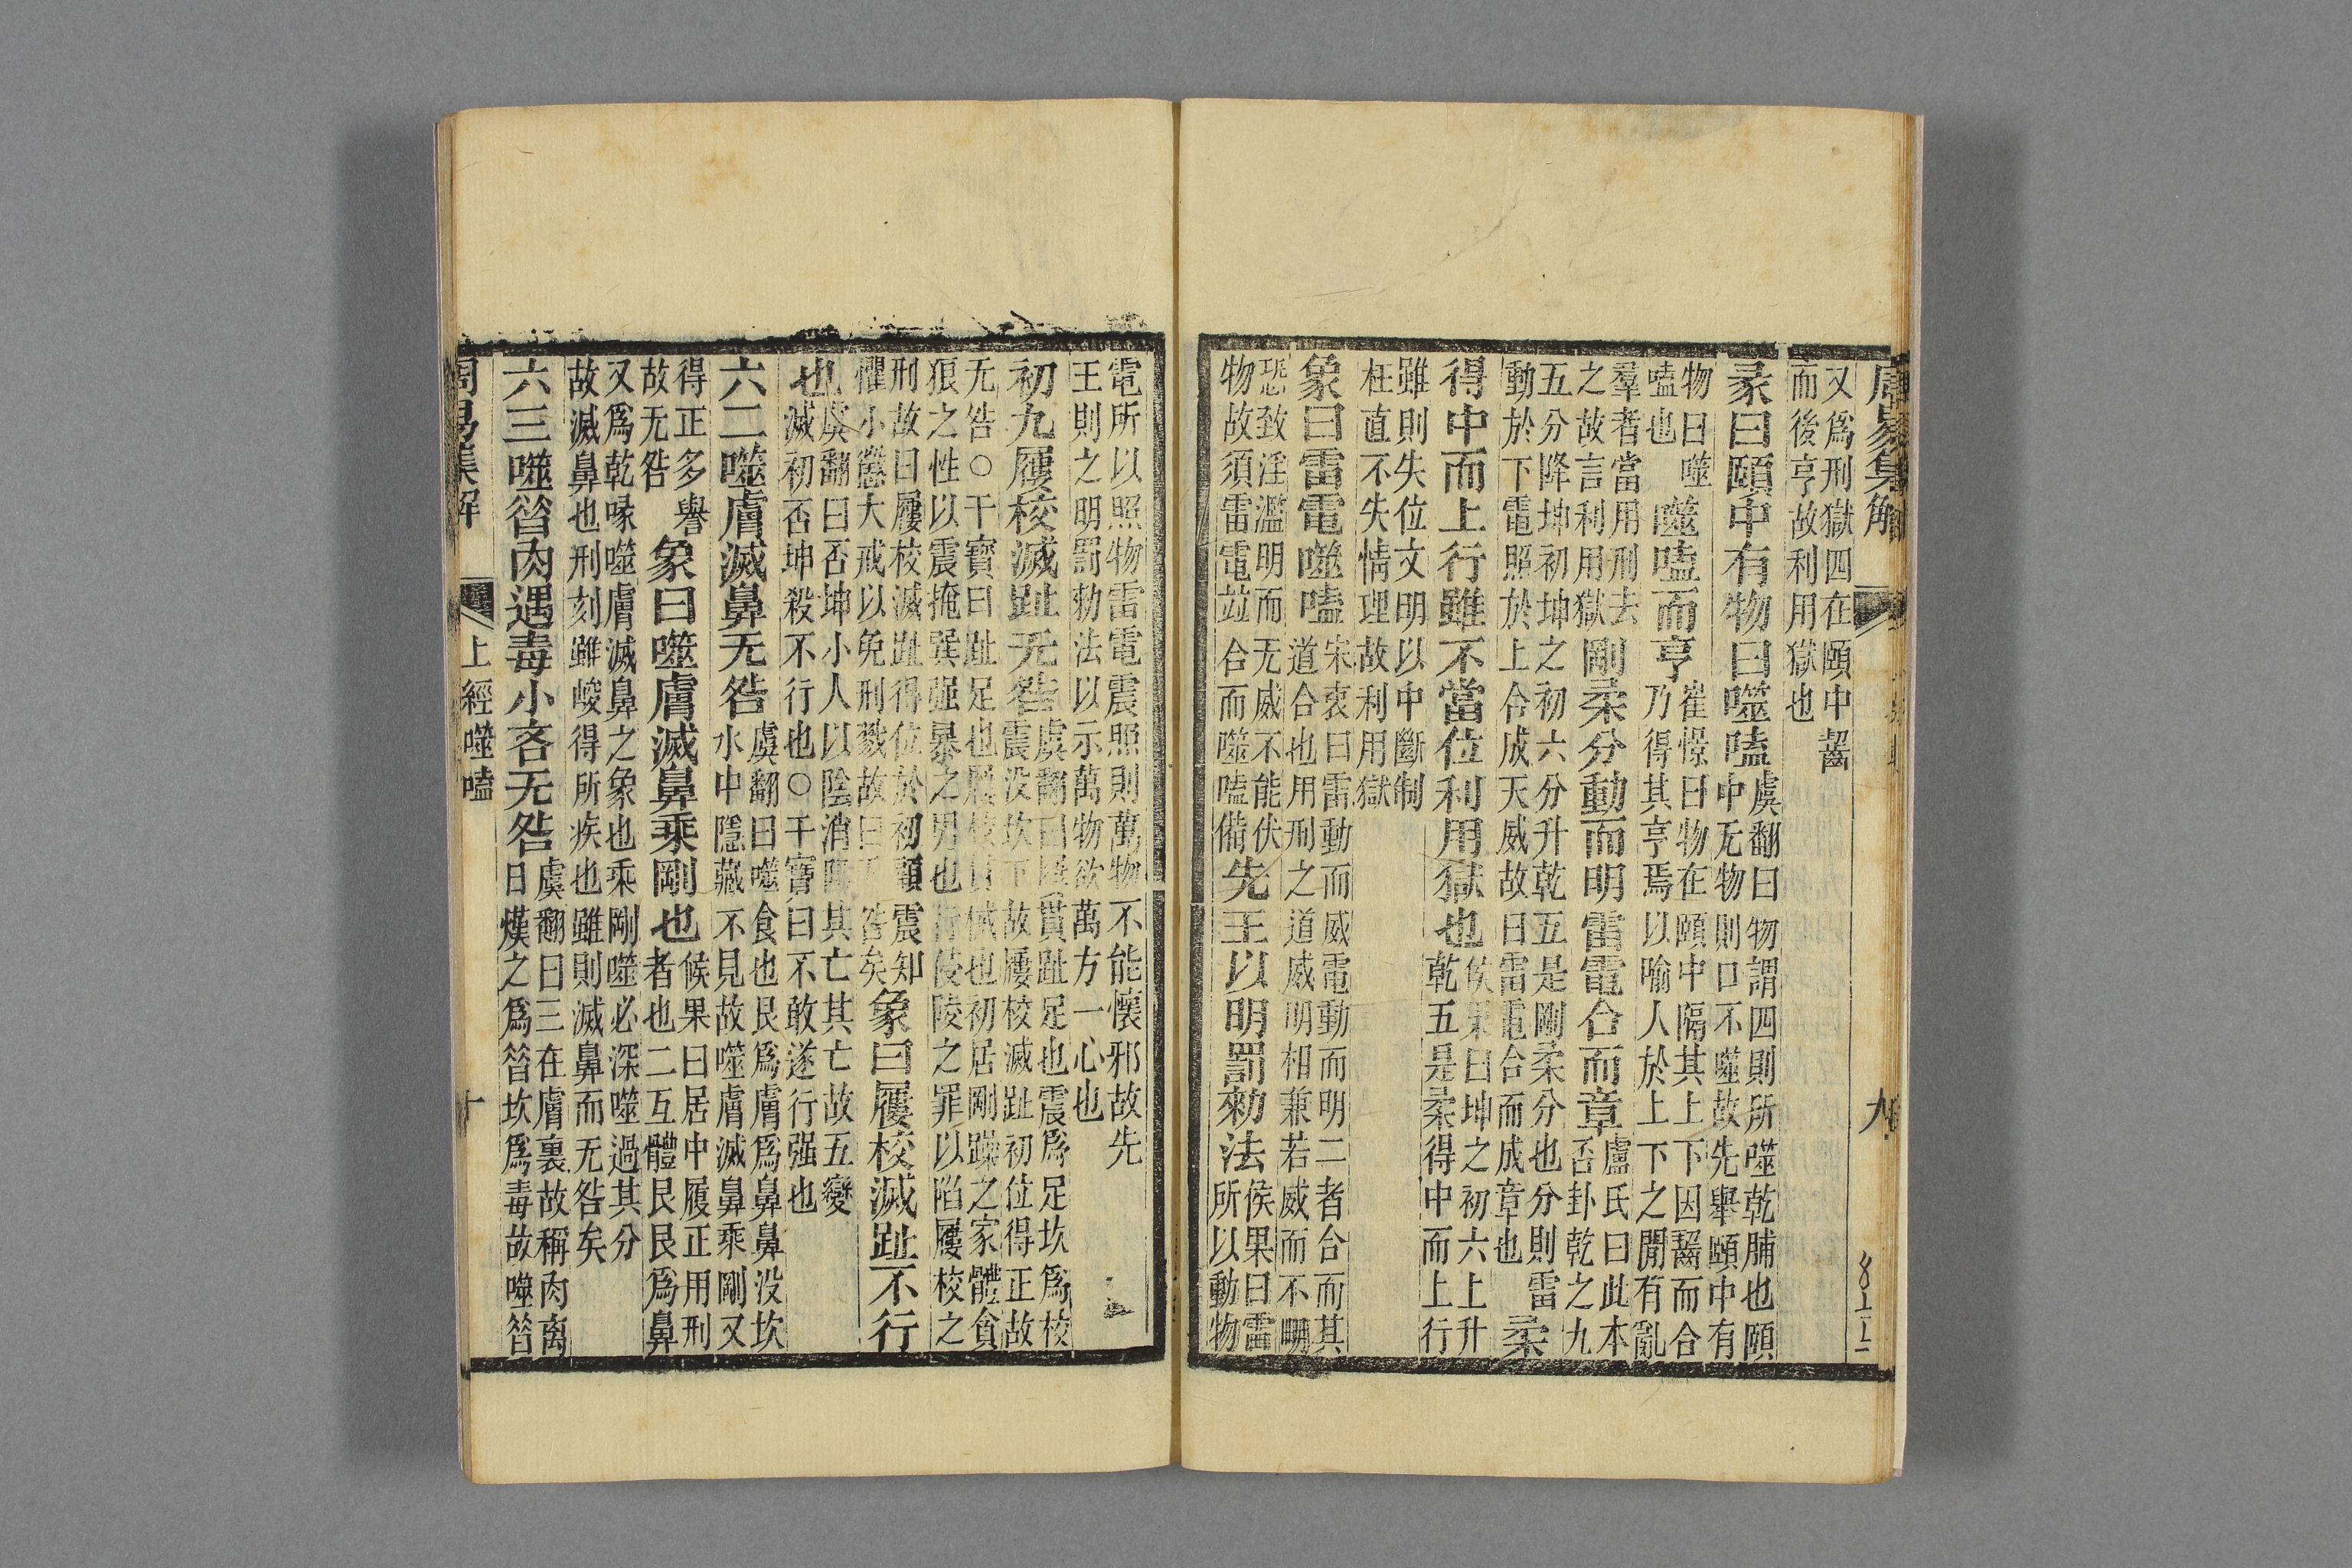 唐易集解
九
又爲刑獄四在頤中齧
而後亨故利用獄也
彖曰頤中有物曰噬嗑
虞翻曰物謂四則所噬乾脯也頤
中无物則口不噬故先舉頤中有
物曰噬
嗑也
噬嗑而亨
崔憬曰物在頤中隔其上下因齧而合
乃得其亨焉以喻人於上下之閒有亂
羣者當用刑去
之故言利用獄
剛柔分動而明雷電合而章
盧氏曰此本
否卦乾之九
五分降坤初坤之初六分升乾五是剛柔分也分則雷
動於下電照於上合成天威故曰雷電合而成章也
柔
得中而上行雖不當位利用獄也
侯果曰坤之初六上升
乾五是柔得中而上行
雖則失位文明以中斷制
枉直不失情理故利用獄
象曰雷電噬嗑
宋衷曰雷動而威電動而明二者合而其
道合也用刑之道威明相兼若威而不明
恐致淫濫明而无威不能伏
物故須雷電竝合而噬嗑備
先王以明罰勑法
侯果曰雷
所以動物
電所以照物雷電震照則萬物不能懷邪故先
王則之明罰勑法以示萬物欲萬方一心也
初九屨校滅趾无咎
虞翻曰屨貫趾足也震爲足坎爲校
震没坎下故屨校滅趾初位得正故
无咎○干寶曰趾足也屨校貫械也初居剛躁之家體貪
狼之性以震掩巽强暴之男也行侵陵之罪以陷屨校之
刑故曰屨校滅趾得位於初顧震知
懼小懲大戒以免刑戮故曰无咎矣
象曰屨校滅趾不行
也
虞翻曰否坤小人以陰消陽其亡其亡故五變
滅初否坤殺不行也○干寶曰不敢遂行强也
六二噬膚滅鼻无咎
虞翻曰噬食也艮爲膚爲鼻鼻没坎
水中隱藏不見故噬膚滅鼻乘剛又
得正多譽
故无咎
象曰噬膚滅鼻乘剛也
候果曰居中履正用刑
者也二互體艮艮爲鼻
又爲乾喙噬膚滅鼻之象也乘剛噬必深噬過其分
故滅鼻也刑刻雖峻得所疾也雖則滅鼻而无咎矣
六三噬㫺肉遇毒小吝无咎
虞翻曰三在膚裏故稱肉离
日熯之爲㫺坎爲毒故噬㫺
周易集解
上經噬嗑
十